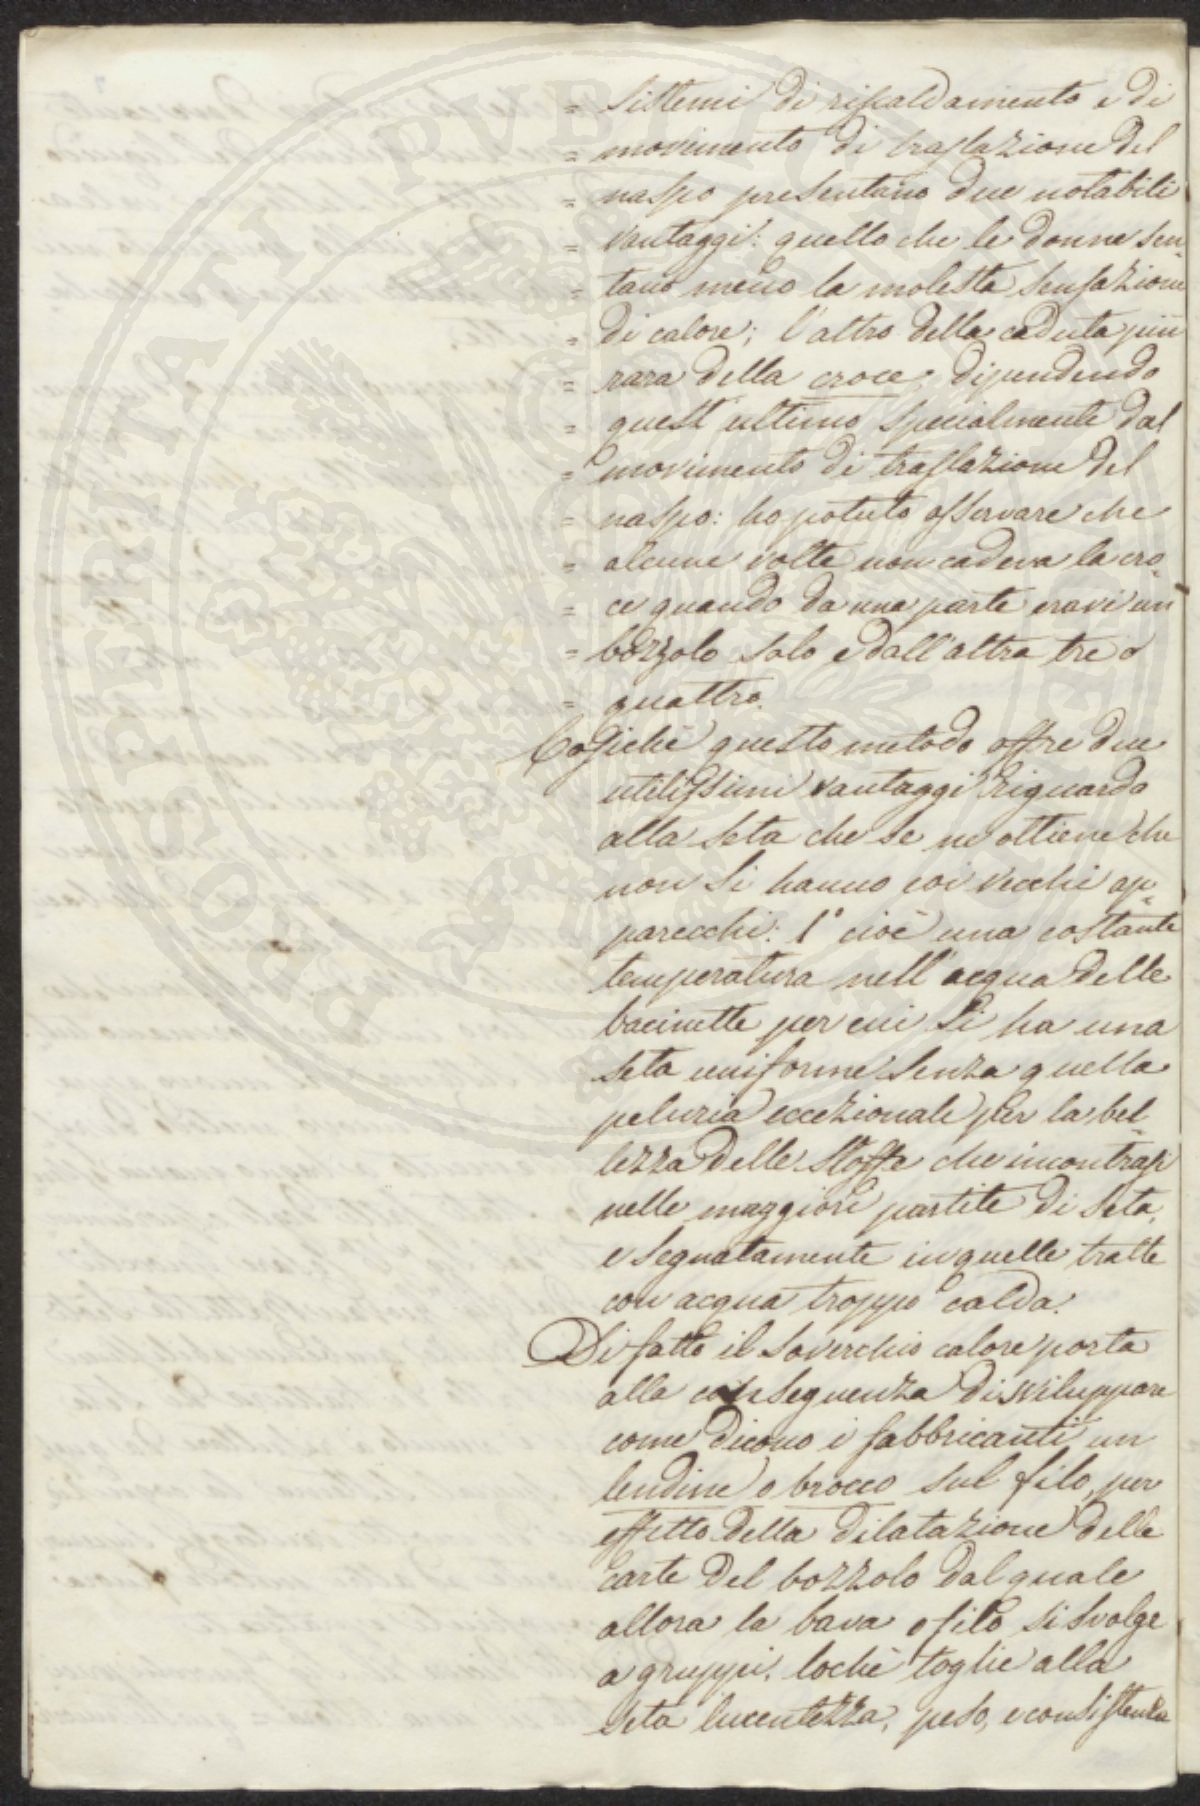 = sistemi di riscaldamento e di
= movimento di traslazione del
= naspo presentano due notabili
= vantaggi: quello che le donne sen=
= tano meno la molesta sensazione
= di calore; l'altro della caduta più
= rara della croce; dipendendo
= quest'ultimo specialmente dal
= movimento di traslazione del
= naspo: ho potuto osservare che
= alcune volte non cadeva la cro=
= ce quando da una parte eravi un
= bozzolo solo e dall'altra tre o
= quattro.
Cosichè questo metodo offre due
utilissimi vantaggi riguardo
alla seta che se ne ottiene che
non si hanno coi vecchi ap=
parecchi: 1° cioè una costante
temperatura nell'acqua delle
bacinette per cui si ha una
seta uniforme senza quella
peluria eccezionale per la bel=
lezza delle stoffe che incontrasi
nelle maggiori partite di seta,
e segnatamente in quelle tratte
con acqua troppo calda.
Di fatto il soverchio calore porta
alla conseguenza di sviluppare
come dicono i fabbricanti un
lendine o brocco sul filo per
effetto della dilatazione delle
carte del bozzolo dal quale
allora la bava o filo si svolge
a gruppi, lochè toglie alla
seta lucentezza, peso, e consistenza
PROSPERITATI PUBLICAE